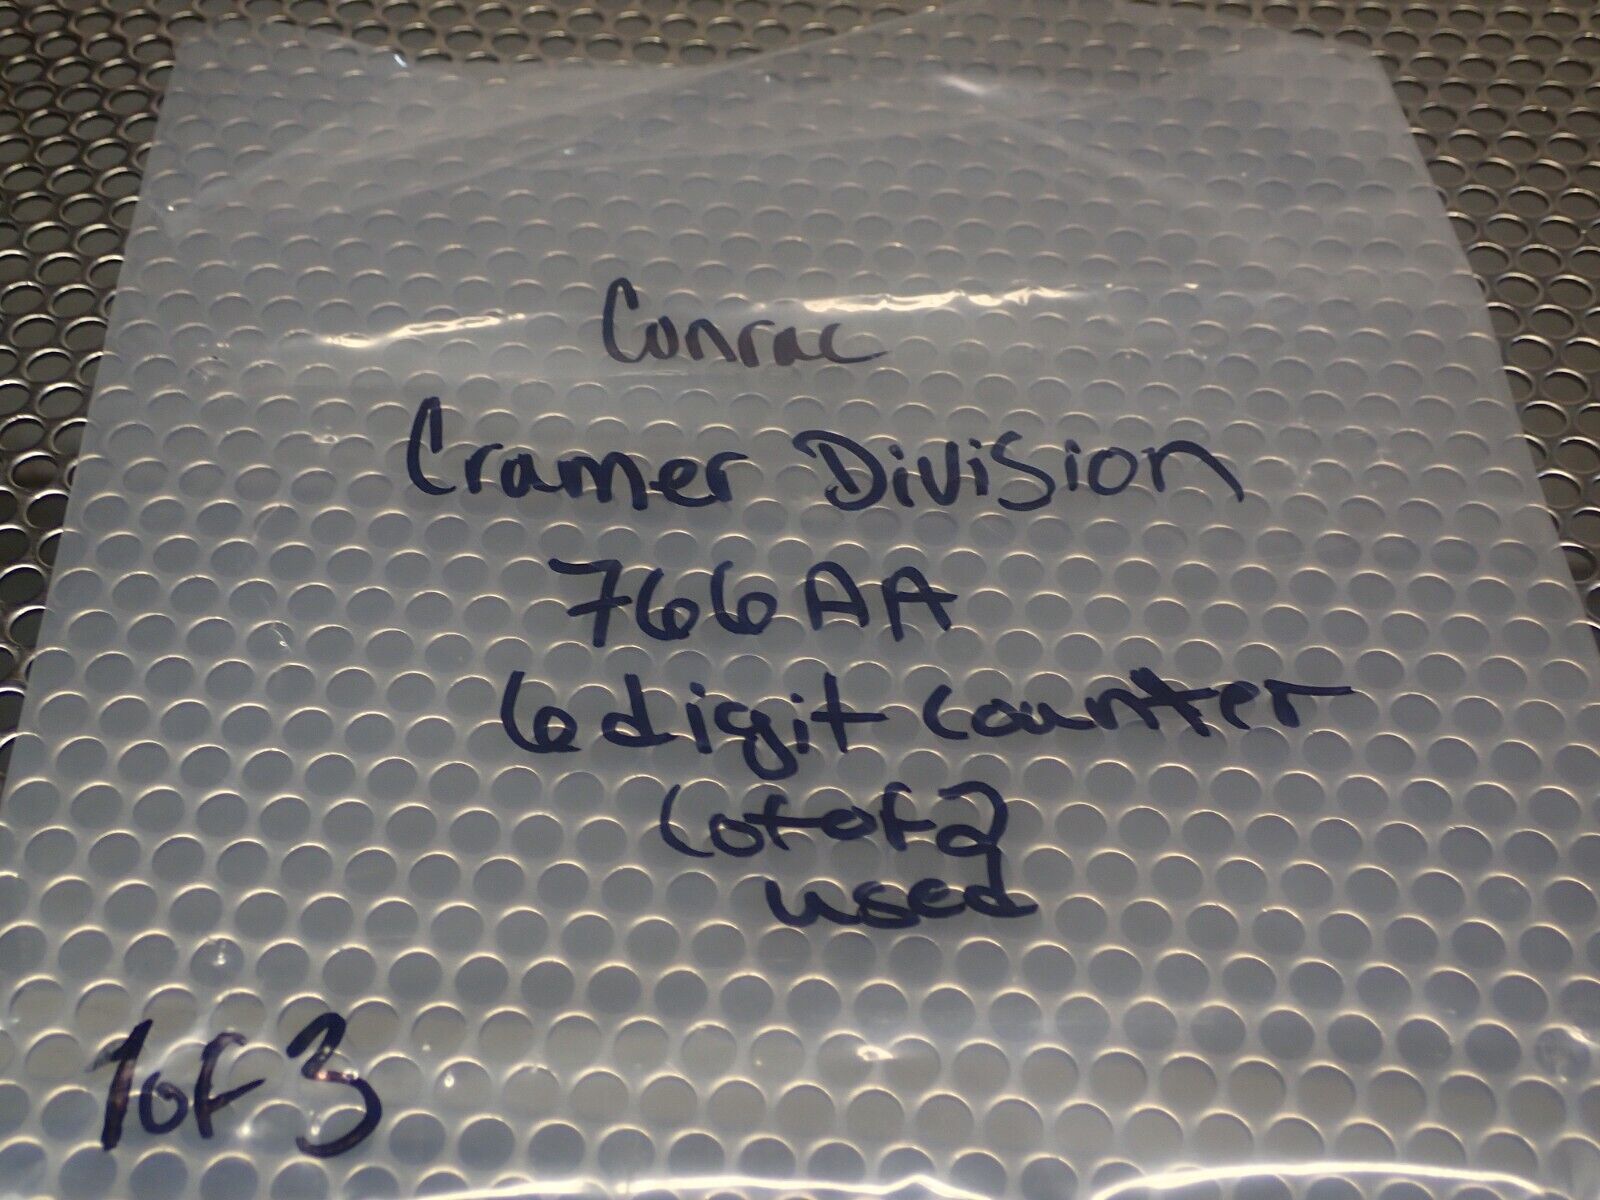 Conrac
Cramer Division
766AA
6 digit counter
Lot of 2
used
1 of 3